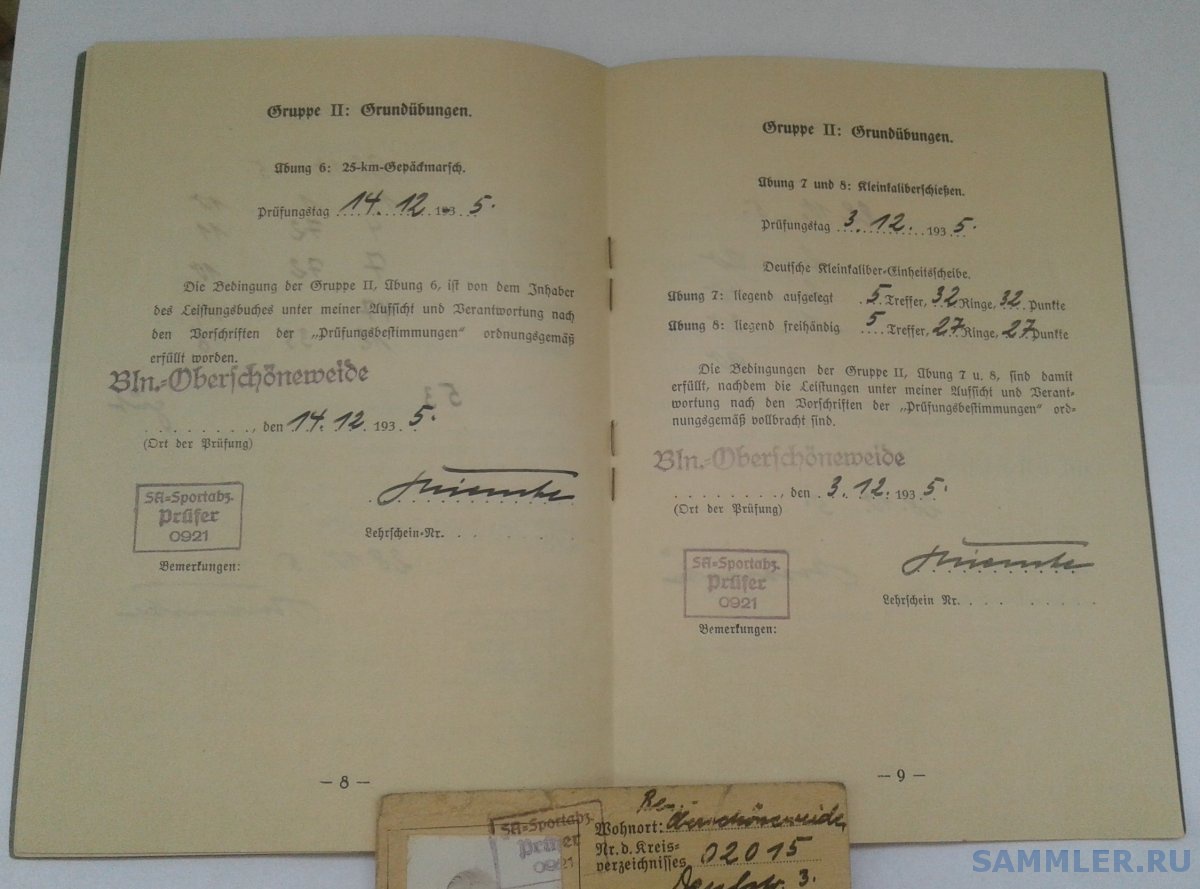 Gruppe II: Grundübungen.
Übung 6: 25-km-Gepäckmarsch.
Prüfungstag 14. 12. 193 5.
Die Bedingung der Gruppe II, Übung 6, ist von dem Inhaber
des Leistungsbuches unter meiner Aufsicht und Verantwortung nach
den Vorschriften der „Prüfungsbestimmungen" ordnungsgemäß
erfüllt worden.
Bln.-Oberschöneweide
. . . . . . . . ., den 14. 12. 193 5.
(Ort der Prüfung)
SA-Sportabz.
Prüfer
0921
Lehrschein-Nr. . . . . . . .
Bemerkungen:
— 8 —
Gruppe II: Grundübungen.
Übung 7 und 8: Kleinkaliberschießen.
Prüfungstag 3. 12. 193 5.
Deutsche Kleinkaliber-Einheitsscheibe.
Übung 7: liegend aufgelegt 5 Treffer, 32 Ringe, 32 Punkte
Übung 8: liegend freihändig 5 Treffer, 27 Ringe, 27 Punkte
Die Bedingungen der Gruppe II, Übung 7 u. 8, sind damit
erfüllt, nachdem die Leistungen unter meiner Aufsicht und Verant-
wortung nach den Vorschriften der „Prüfungsbestimmungen" ord-
nungsgemäß vollbracht sind.
Bln.-Oberschöneweide
. . . . . . . . ., den 3. 12. 193 5.
(Ort der Prüfung)
SA-Sportabz.
Prüfer
0921
Lehrschein Nr. . . . . . . .
Bemerkungen:
— 9 —
SA-Sportabz.
Prüfer
0921
Wohnort: Oberschöneweide
Nr. d. Kreis-
verzeichnisses 02015
3.
SAMMLER.RU